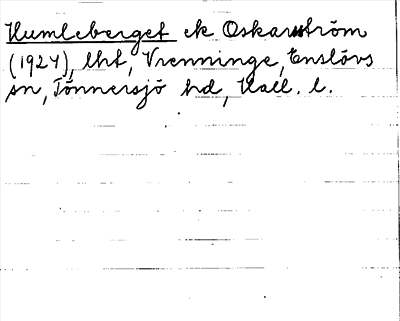 Humleberget ek Oskarström
(1924), lht, Vrenninge, Enslövs
sn, Tönnersjö hd, Hall. l.